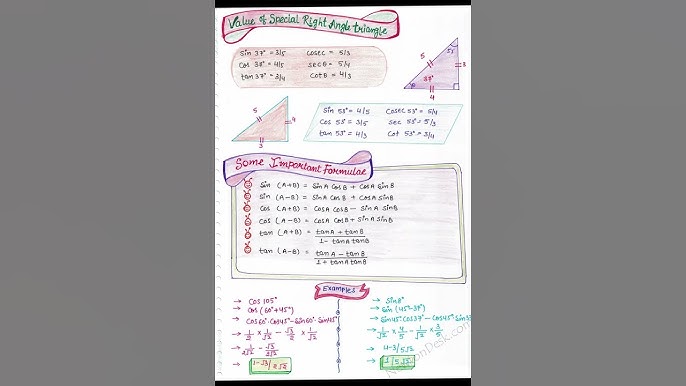 Value of Special Right Angle triangle
sin 37° = 3/5 cosec = 5/3
cos 37° = 4/5 sec θ = 5/4
tan 37° = 3/4 cot θ = 4/3
5
53°
3
37°
4
5
4
3
sin 53° = 4/5 cosec 53° = 5/4
cos 53° = 3/5 sec 53° = 5/3
tan 53° = 4/3 cot 53° = 3/4
Some Important Formulae
Sin (A+B) = Sin A Cos B + Cos A Sin B
Sin (A-B) = Sin A Cos B + Cos A Sin B
Cos (A+B) = Cos A Cos B - Sin A Sin B
Cos (A-B) = Cos A Cos B + Sin A Sin B
tan (A+B) = tan A + tan B / 1 - tan A tan B
tan (A-B) = tan A - tan B / 1 + tan A tan B
Examples
→ Cos 105°
→ Cos (60°+45°)
→ Cos 60° Cos 45° - Sin 60° Sin 45°
→ 1/2 × 1/√2 - √3/2 × 1/√2
→ 1/2√2 - √3/2√2
→ 1-√3/2√2
→ Sin 8°
→ Sin (45°-37°)
→ Sin 45° Cos 37° - Cos 45° Sin 37
→ 1/√2 × 4/5 - 1/√2 × 3/5
→ 4-3/5√2
→ 1/5√2